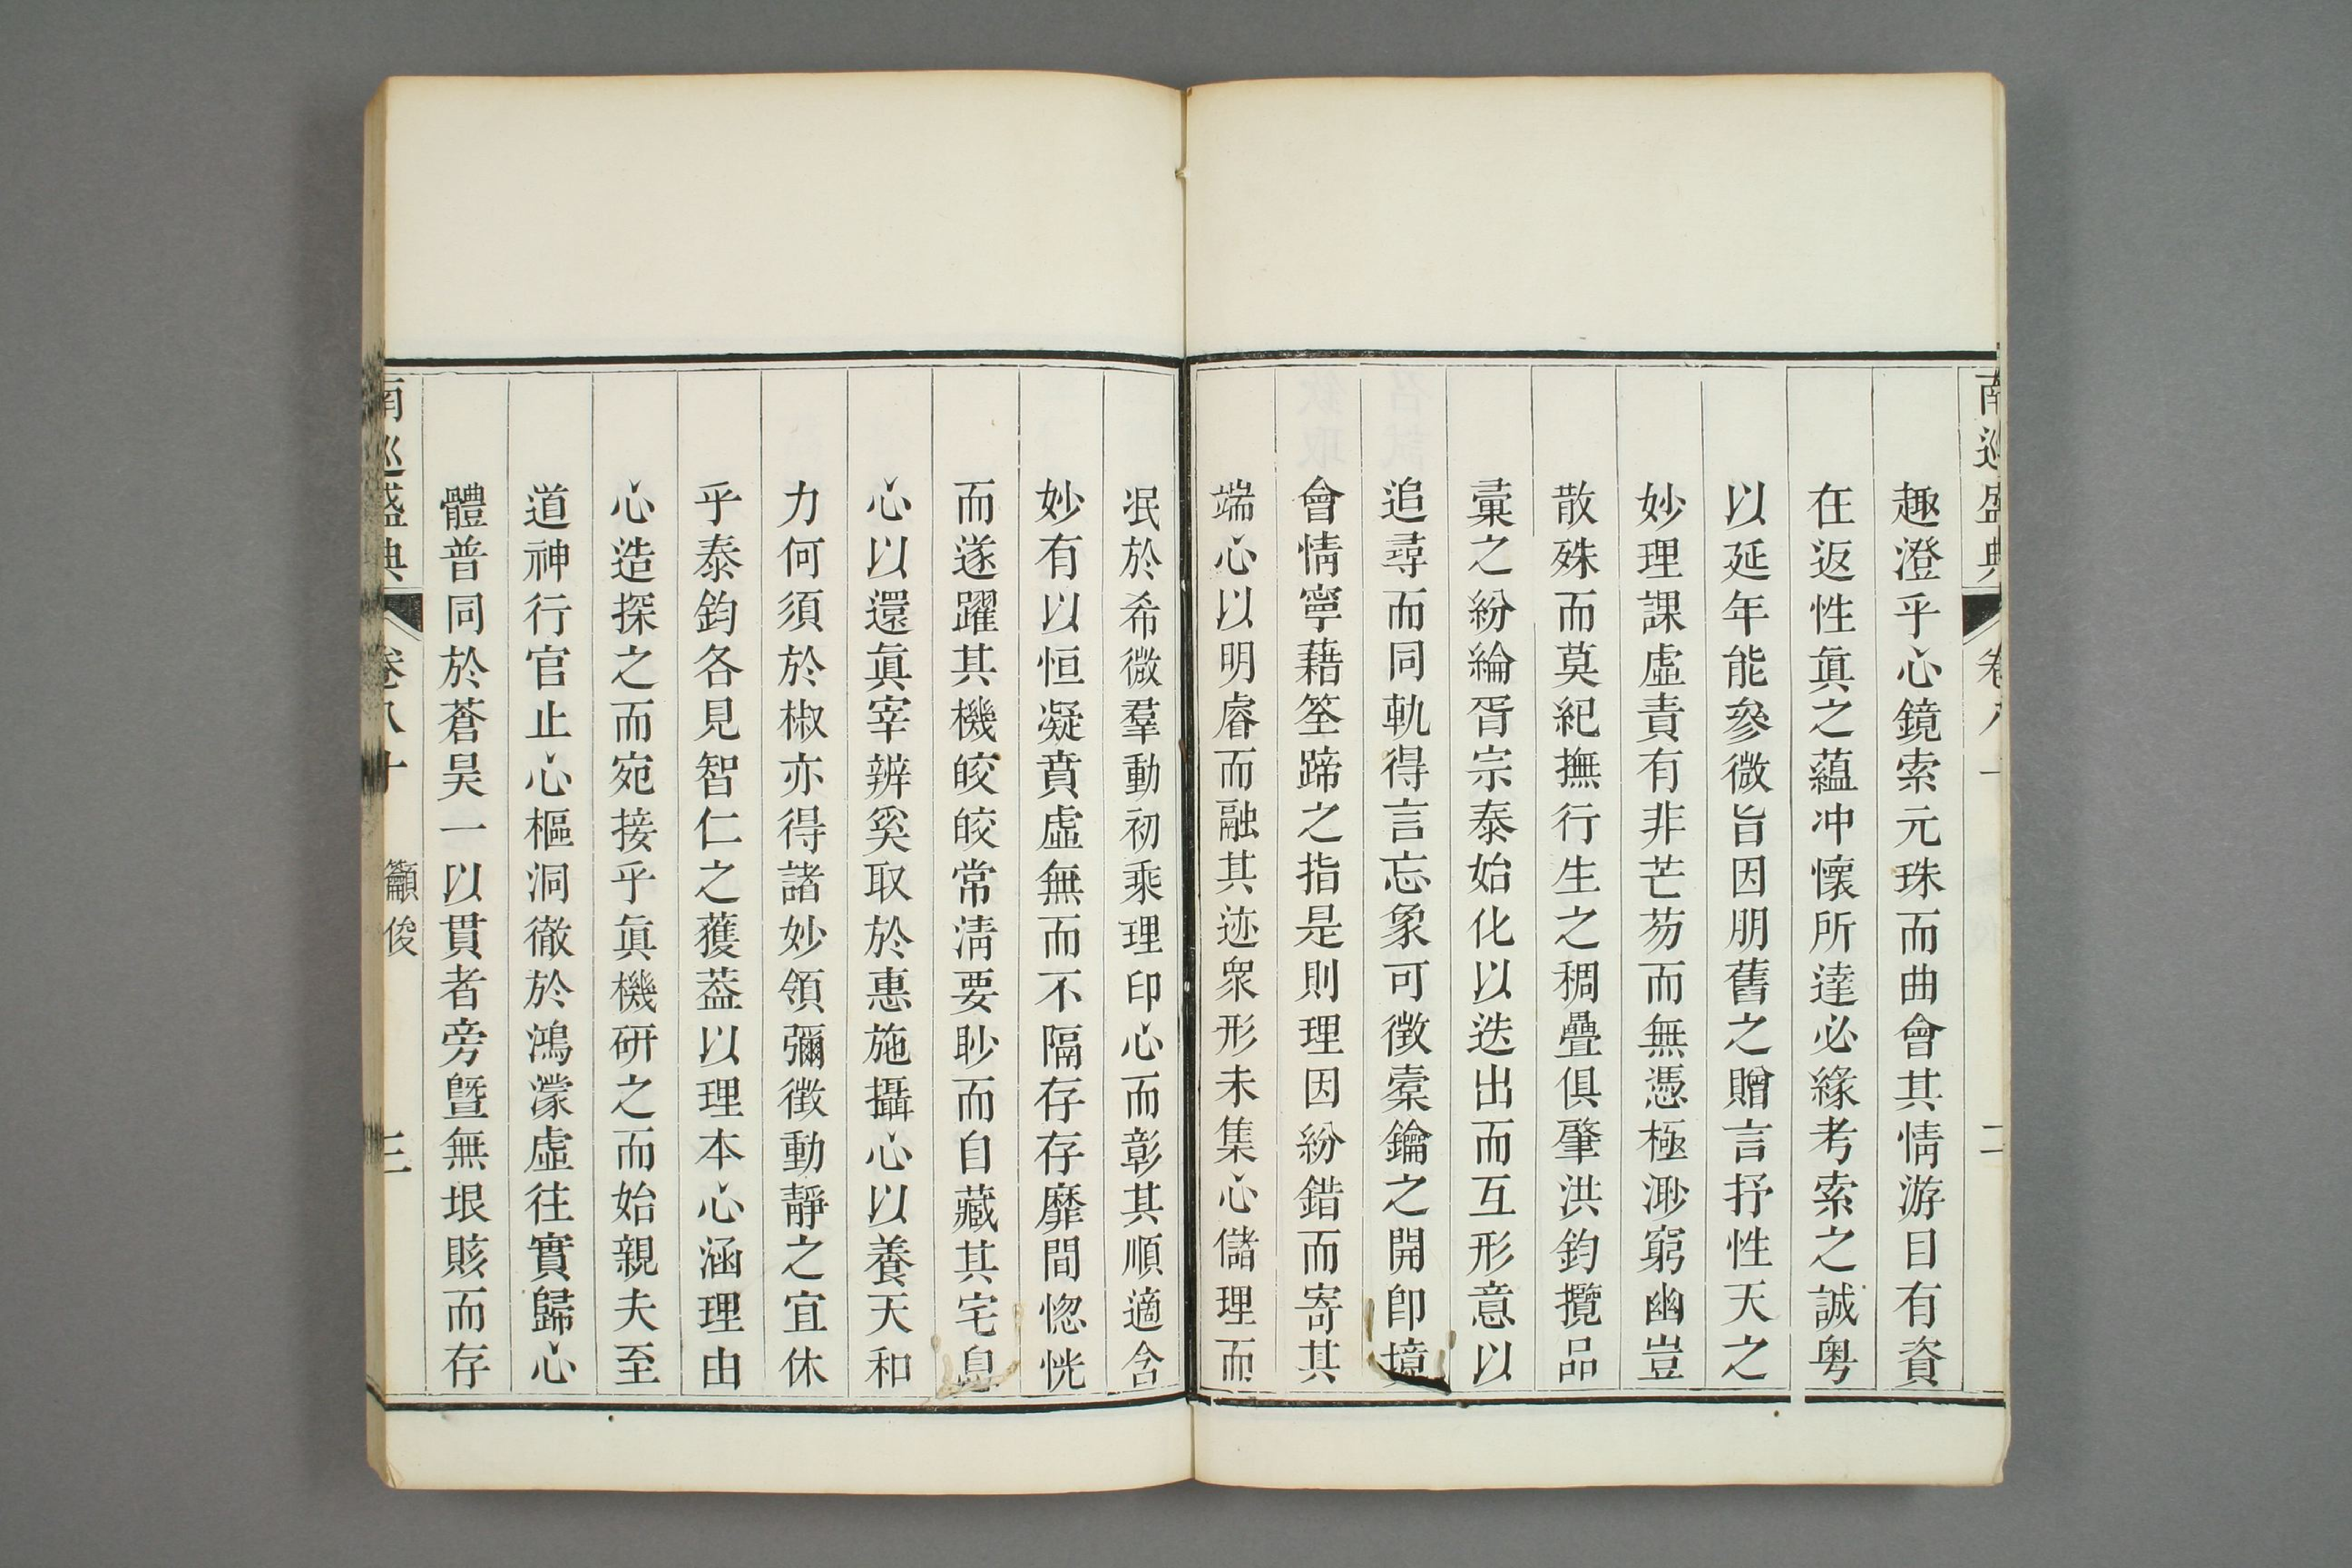 趣澄乎心鏡索元珠而曲會其情游目有資
在返性眞之蘊冲懷所達必緣考索之誠粤
以延年能參微旨因朋舊之贈言抒性天之
妙理課虛責有非芒芴而無憑極渺窮幽豈
散殊而莫紀撫行生之稠疊俱肇洪鈞攬品
彙之紛綸胥宗泰始化以迭出而互形意以
追尋而同軌得言忘象可徵橐鑰之開卽境
會情寧藉筌蹄之指是則理因紛錯而寄其
端心以明睿而融其迹衆形未集心儲理而
泯於希微羣動初乘理印心而彰其順適含
妙有以恒凝賁虛無而不隔存存靡間惚恍
而遂躍其機皎皎常淸要眇而自藏其宅息
心以還眞宰辨奚取於惠施攝心以養天和
力何須於椒亦得諸妙領彌徵動靜之宜休
乎泰鈞各見智仁之獲葢以理本心涵理由
心造探之而宛接乎眞機研之而始親夫至
道神行官止心樞洞徹於鴻濛虛往實歸心
體普同於蒼昊一以貫者旁曁無垠賅而存
南巡盛典 卷八十 籲俊 三